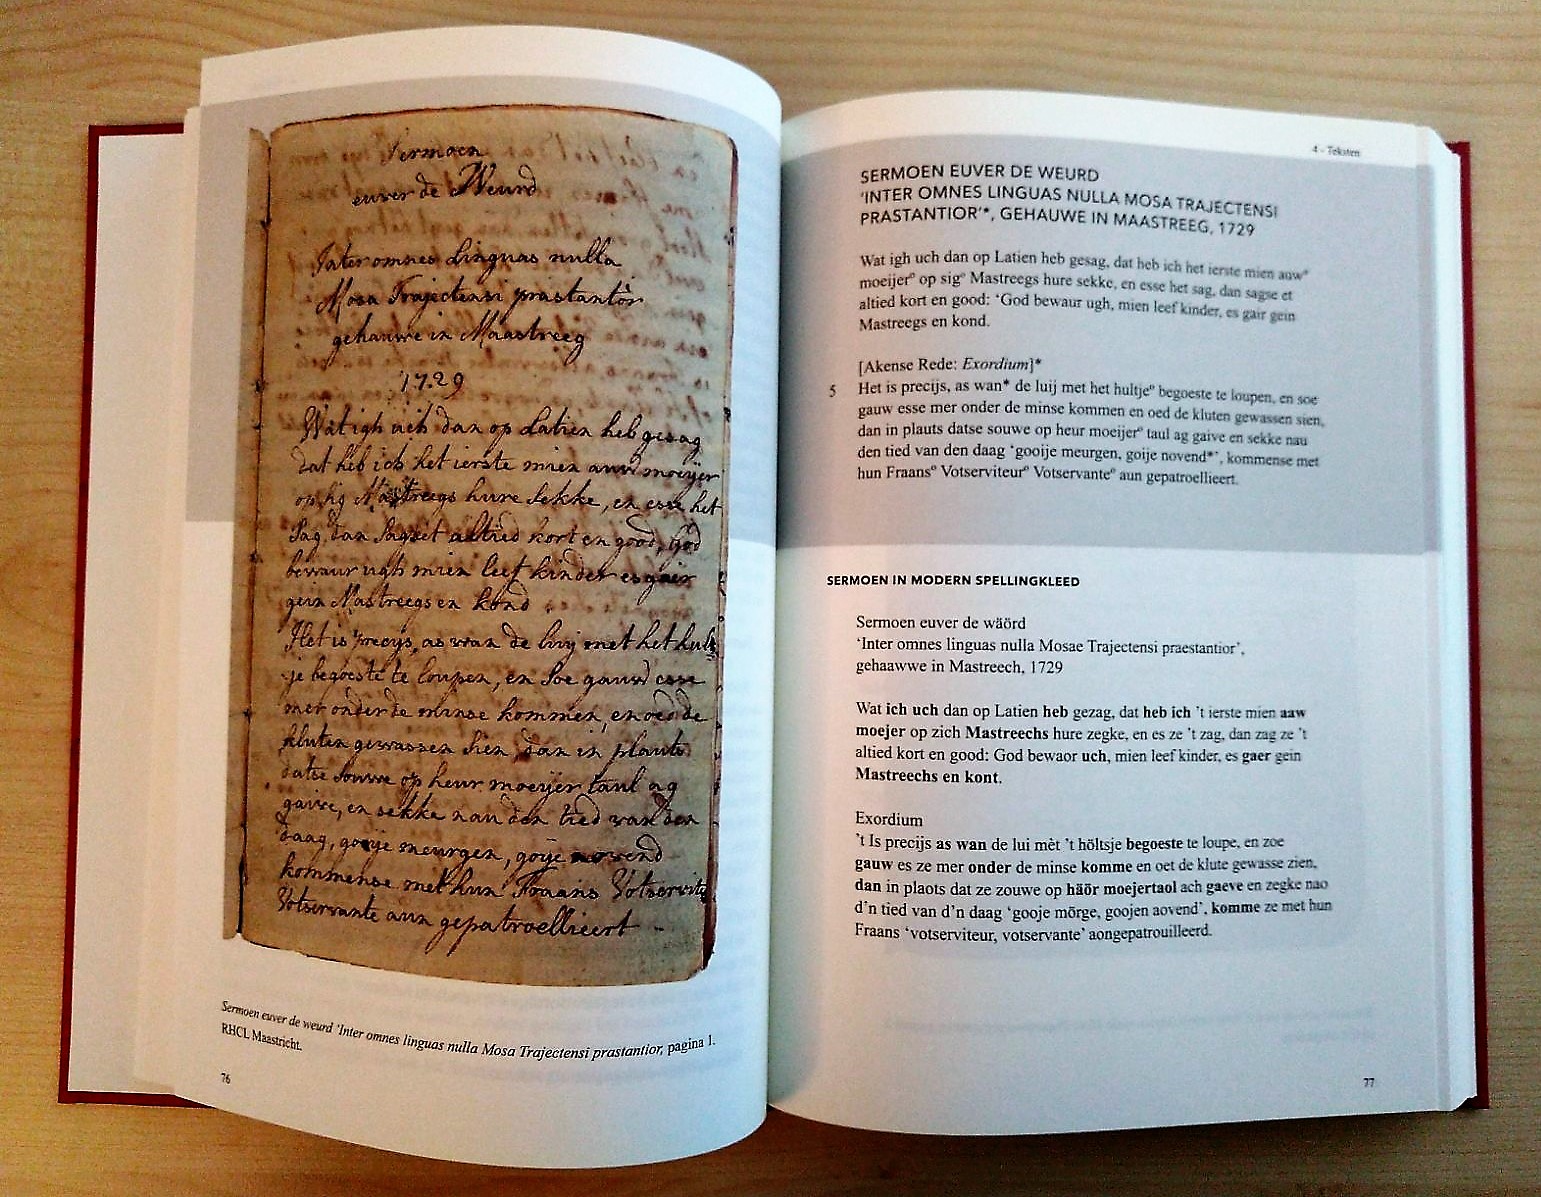 Sermoen
euver de Weurd
Inter omnes Linguas nulla
Mosa Trajectensi prastantior
gehauwe in Maastreeg
1729
Wat igh uch dan op Latien heb gesag
dat heb ich het ierste mien auw moeijer
op sig Mastreegs hure sekke, en esse het
sag, dan sagset altied kort en good, God
bewaur ugh mien leef kinder es gair
gein Mastreegs en kond
Het is precys, as wan de luij met het hult
je begoeste te loupen, en soe gauw esse
mer onder de minse kommen, en oed de
kluten gewassen sien, dan in plauts
datse souwe op heur moeijer taul ag
gaive, en sekke nau den tied van den
daag, gooije meurgen, goije novend
kommense met hun Fraans Votservit
Votservante aun gepatroellieert
Sermoen euver de weurd 'Inter omnes linguas nulla Mosa Trajectensi prastantior, pagina 1.
RHCL Maastricht.
76
4 - Teksten
SERMOEN EUVER DE WEURD
'INTER OMNES LINGUAS NULLA MOSA TRAJECTENSI
PRASTANTIOR'*, GEHAUWE IN MAASTREEG, 1729
Wat igh uch dan op Latien heb gesag, dat heb ich het ierste mien auwº
moeijerº op sigº Mastreegs hure sekke, en esse het sag, dan sagse et
altied kort en good: 'God bewaur ugh, mien leef kinder, es gair gein
Mastreegs en kond.
[Akense Rede: Exordium]*
5 Het is precijs, as wan* de luij met het hultjeº begoeste te loupen, en soe
gauw esse mer onder de minse kommen en oed de kluten gewassen sien,
dan in plauts datse souwe op heur moeijerº taul ag gaive en sekke nau
den tied van den daag 'gooije meurgen, goije novend*', kommense met
hun Fraansº Votserviteurº Votservanteº aun gepatroellieert.
SERMOEN IN MODERN SPELLINGKLEED
Sermoen euver de wäörd
'Inter omnes linguas nulla Mosae Trajectensi praestantior',
gehaawwe in Mastreech, 1729
Wat ich uch dan op Latien heb gezag, dat heb ich 't ierste mien aaw
moejer op zich Mastreechs hure zegke, en es ze 't zag, dan zag ze 't
altied kort en good: God bewaor uch, mien leef kinder, es gaer gein
Mastreechs en kont.
Exordium
't Is precijs as wan de lui mèt 't höltsje begoeste te loupe, en zoe
gauw es ze mer onder de minse komme en oet de klute gewasse zien,
dan in plaots dat ze zouwe op häör moejertaol ach gaeve en zegke nao
d'n tied van d'n daag 'gooje mörge, goojen aovend', komme ze met hun
Fraans 'votserviteur, votservante' aongepatrouilleerd.
77